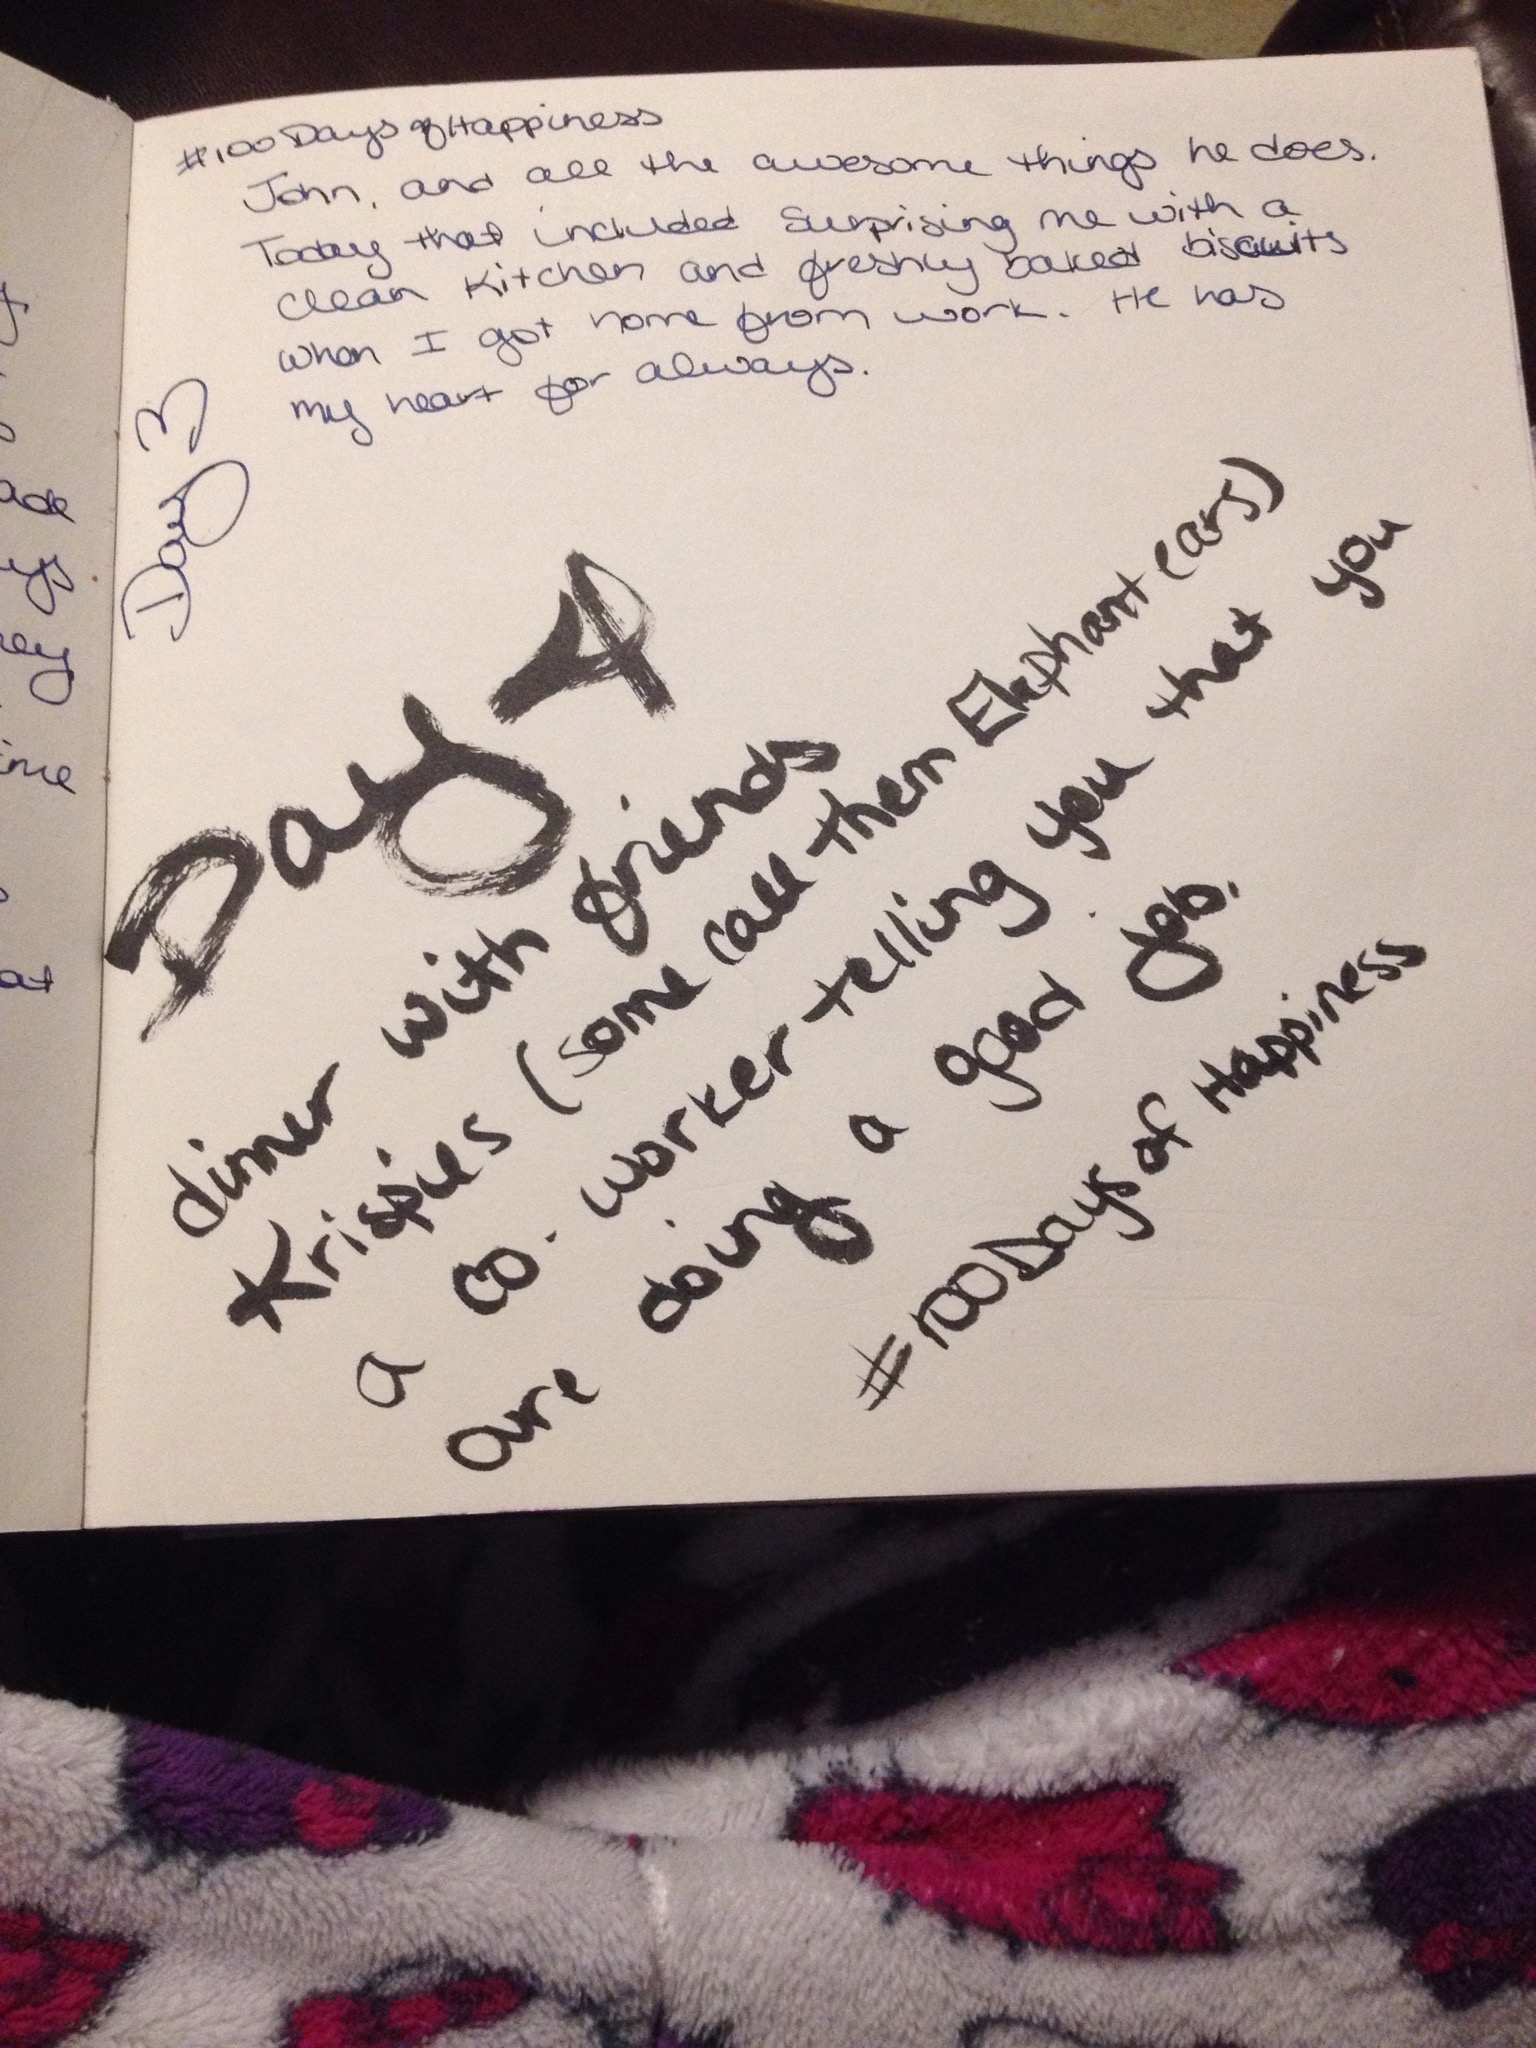 #100DaysofHappiness
John, and all the awesome things he does.
Today that included surprising me with a
clean kitchen and freshly baked biscuits
when I got home from work. He has
my heart for always.
Day 3
Day 4
dinner with friends
Krispies (some call them Elephant ears)
a co-worker telling you that you
are doing a good job.
#100Days of Happiness
ime
at